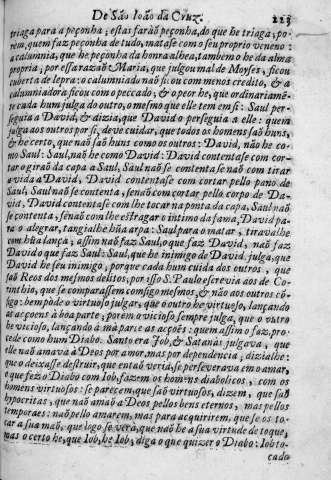 De São Ioão da Cruz. 223
triaga para a peçonha, estas farâo peçonha, do que he triaga; po-
rèm, quem faz peçonha de tudo, matase com o seu proprio veneno:
a calumnia, que he peçonha da honra alhea, tambem o he da alma
propria; por essa razaõ: Maria, que julgou mal de Moyses, ficou
cuberta de lepra: o calumniado naõ fi: ou com menos credito, & a
calumniadora ficou com o peccado, & o peor he, que ordinariame-
te cada hum julga do outro, o mesmo que elle tem em si: Saul per-
seguia a David, & dizia, que David o perseguia a elle: quem
julga aos outros por si, deve cuidar, que todos os homens saõ huns,
& he certo, que naõ saõ huns como os outros: David, naõ he co-
mo Saul: Saul, naõ he como David: David contentase com cor-
tar o giraõ da capa a Saul, Saul naõ se contenta se naõ com tirar
a vida a David, David contentase com cortar pello pano de
Saul, Saul naõ se contenta, senaõ com cortar pello corpo de Da-
via, David contentase com lhe tocar na ponta da capa, Saul naõ
se contenta, senaõ com lhe estragar o intimo da fama, David pa-
ra o alegrar, tangialhe hũa arpa: Saul para o matar, tiravalhe
com hũa lança, assim naõ faz Saul, o que faz David, naõ faz
David o que faz Saul: Saul, que he inimigo de David, julga, que
David he seu inimigo, porque cada hum cuida dos outros, que
saõ Reos dos mesmos delitos; por isso S. Paulo escrevia aos de Co-
rinthio, que se comparassem comsigo mesmos, & não aos outros cõ-
sigo: bem pòde o virtuoso julgar, que o outro he virtuoso, lançando
as acçoens à boa parte; porèm o vicioso sempre julga, que o outro
he vicioso, lançando à mà parte as acções: quem assim o faz, pro-
cede como hum Diabo. Santo era Iob, & Satanàs julgava, que
elle naõ amavà a Deos por amor, mas por dependencia, dizialhe:
que o deixasse destruir, que entaõ veria, se perseverava em o amar,
o que fez o Diabo com Iob, fazem os homẽs diabolicos, com os
homens virtuosos: se parecem, que saõ virtuosos, dizem, que saõ
hypocritas, que naõ amaõ a Deos pellos bens eternos, mas pellos
temporaes: naõ pello amarem, mas para acquirirem, que se os to-
car a sua maõ, que logo se verà, que naõ he a sua virtude de toque,
mas o certo he, que Iob, he Iob, diga o que quizer o Diabo: Iob to-
cado